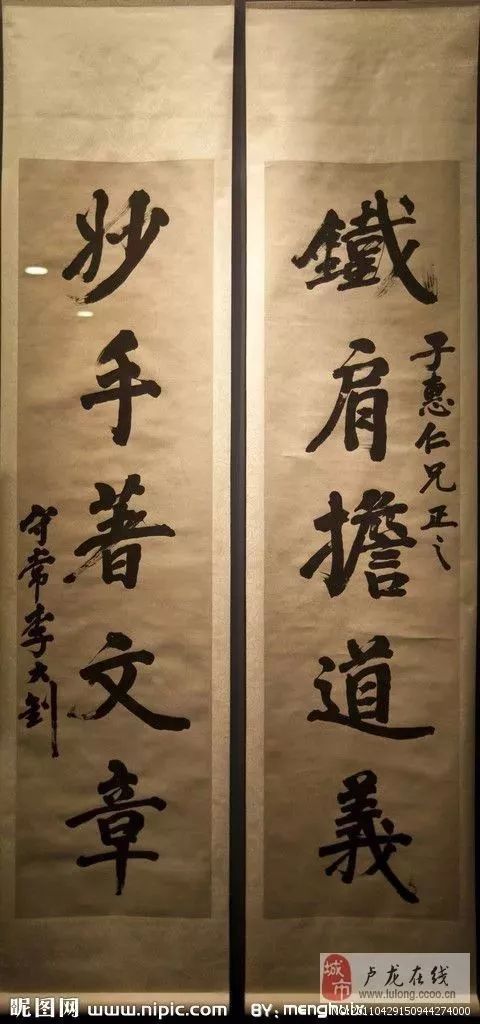 鐵肩擔道義
子惠仁兄正之
妙手著文章
守常李大釗
城市
卢龙在线
www.lulong.ccoo.cn
昵图网 www.nipic.com